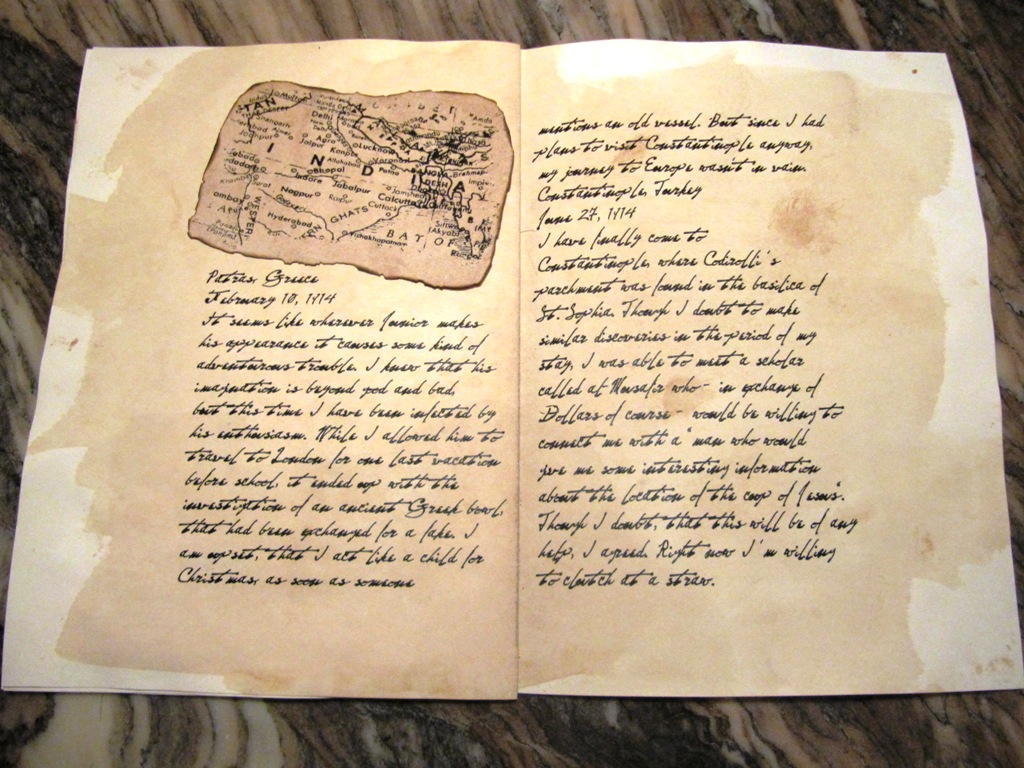 TAN
Multan
Delhi
Jaipur
Kanpur
Lucknow
Allahabad
Patna
INDIA
Bhopal
Indore
Jabalpur
Nagpur
Raipur
Calcutta
Cuttack
Hyderabad
GHATS
WESTERN
Vishakhapatnam
BAY OF
BANGLA
DESH
Sittwe
(Akyab)
Patras, Greece
February 10, 1914
It seems like wherever Junior makes
his appearance it causes some kind of
adventurous trouble. I knew that his
imagination is beyond god and bad,
but this time I have been infected by
his enthusiasm. While I allowed him to
travel to London for one last vacation
before school, it ended up with the
investigation of an ancient Greek bowl,
that had been exchanged for a fake. I
am upset, that I act like a child for
Christmas, as soon as someone
mentions an old vessel. But since I had
plans to visit Constantinople anyway,
my journey to Europe wasnt in vain.
Constantinople, Turkey
June 27, 1914
I have finally come to
Constantinople, where Codirolli's
parchment was found in the basilica of
St. Sophia. Though I doubt to make
similar discoveries in the period of my
stay, I was able to meet a scholar
called al-Musafir who - in exchange of
Dollars of course - would be willing to
connect me with a "man who would
give me some interesting information
about the location of the cup of Jesus".
Though I doubt, that this will be of any
help, I agreed. Right now I'm willing
to clutch at a straw.